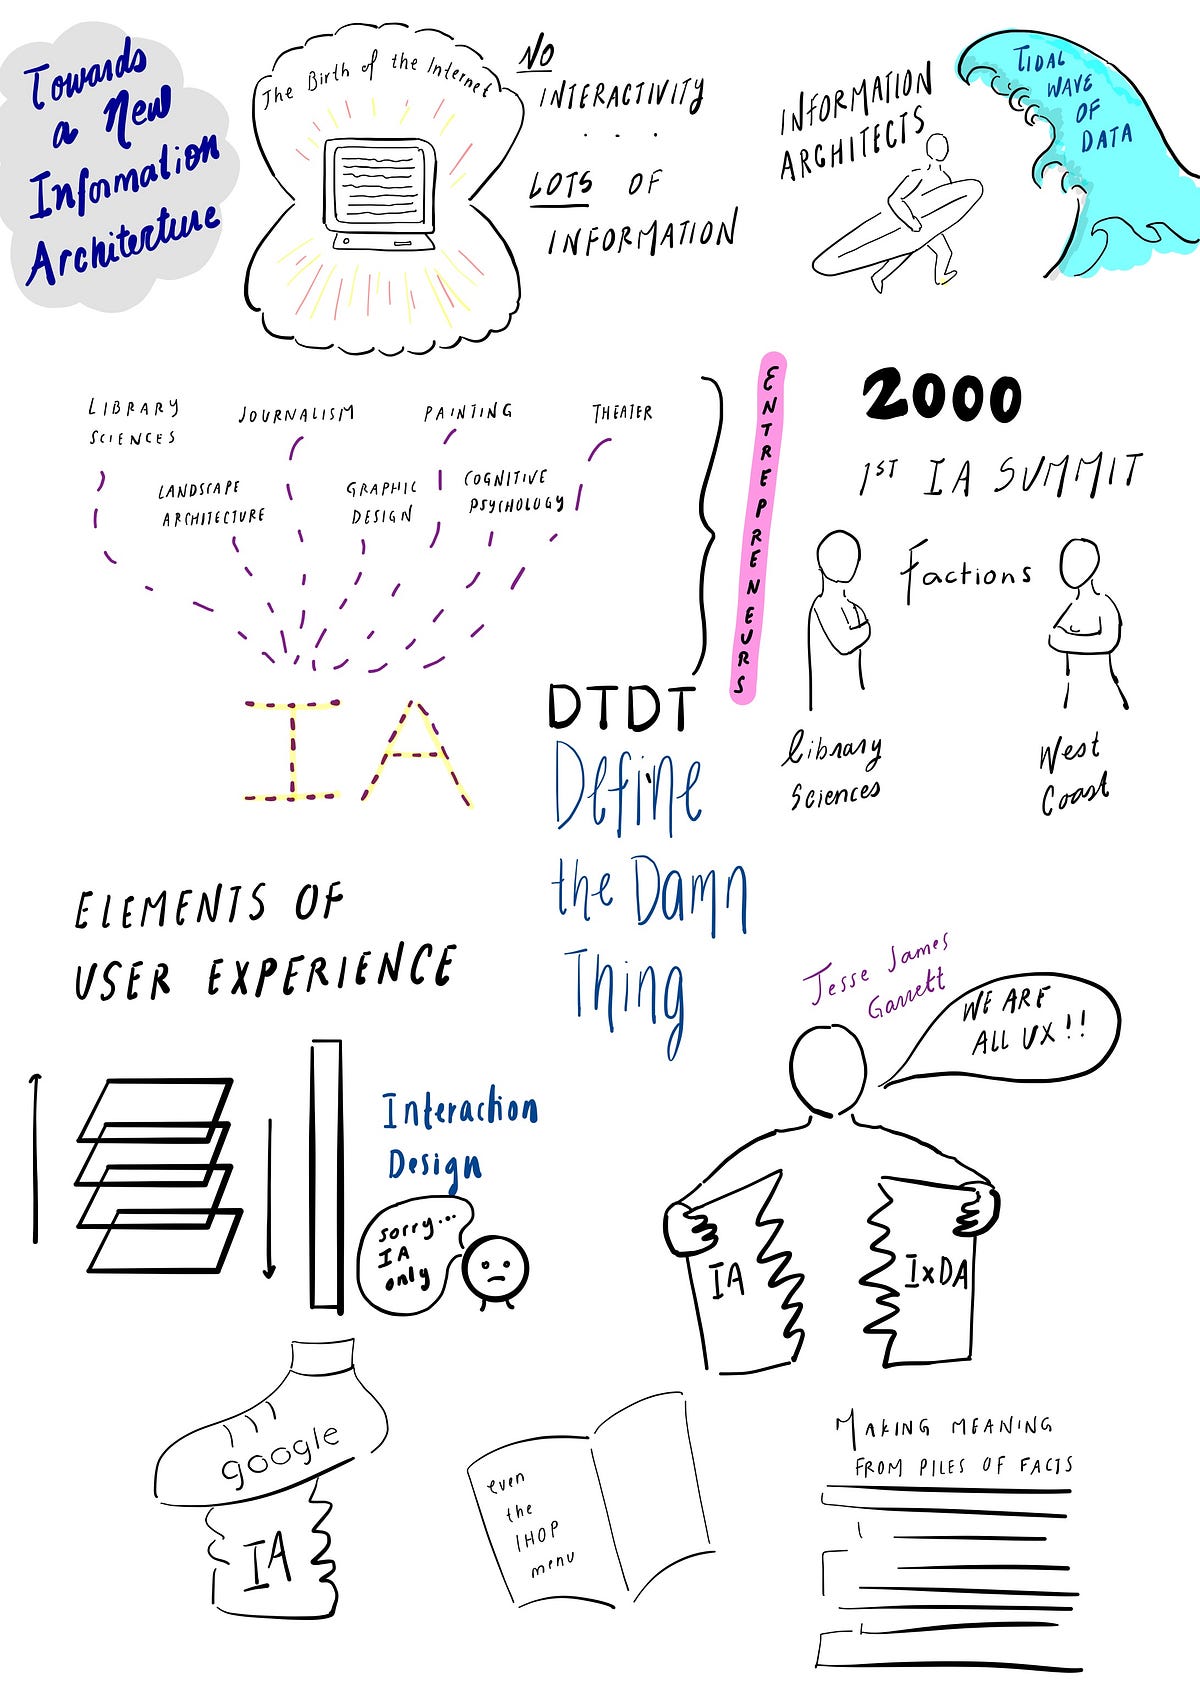 Towards
a New
Information
Architecture
The Birth of the Internet
NO
INTERACTIVITY
. . .
LOTS OF
INFORMATION
INFORMATION
ARCHITECTS
TIDAL
WAVE
OF
DATA
LIBRARY
SCIENCES
JOURNALISM
PAINTING
THEATER
LANDSCAPE
ARCHITECTURE
GRAPHIC
DESIGN
COGNITIVE
PSYCHOLOGY
IA
ENTREPRENEURS
2000
1ST IA SUMMIT
Factions
Library
Sciences
West
Coast
DTDT
Define
the Damn
Thing
ELEMENTS OF
USER EXPERIENCE
Interaction
Design
sorry...
IA
only
Jesse James
Garrett
WE ARE
ALL UX!!
IA
IxDA
google
IA
even
the
IHOP
menu
MAKING MEANING
FROM PILES OF FACTS